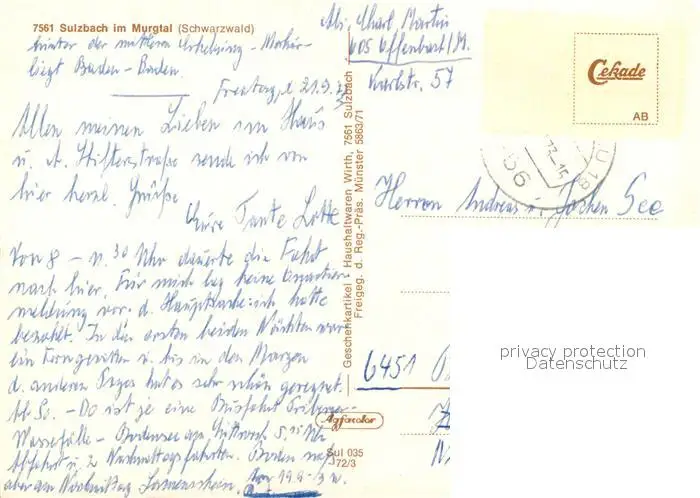 7561 Sulzbach im Murgtal (Schwarzwald)
hinter der mittleren Erhebung - Merkur-
liegt Baden-Baden.
Freitag, d. 21.9.
Allen meinen Lieben im Haus
u. A. Stifterstraße sende ich von
hier herzl. Grüße
Eure Tante Lotte
Von 8 - 11.30 Uhr dauerte die Fahrt
nach hier. Für mich lag keine Quartier-
meldung vor. d. Hauptsache: ich hatte
bezahlt. In den ersten beiden Nächten war
ein Ferngewitter u. bis in den Morgen
d. anderen Tages hat es sehr schön geregnet.
Ab So. - Do ist je eine Busfahrt Triberger-
Wasserfälle - Bodensee am Mittwoch 5.15 Uhr
Abfahrt u. 2 Nachmittagsfahrten. Boden naß
aber am Nachmittag Sonnenschein.
Geschenkartikel Haushaltwaren Wirth, 7561 Sulzbach
Freigeg. d. Reg.-Präs. Münster 5863/71
Agfacolor
Sul 035
72/3
Abs. Charl. Martin
605 Offenbach/M.
Karlstr. 57
Cekade
AB
Herren Andreas u. Jochen See
6451
privacy protection
Datenschutz